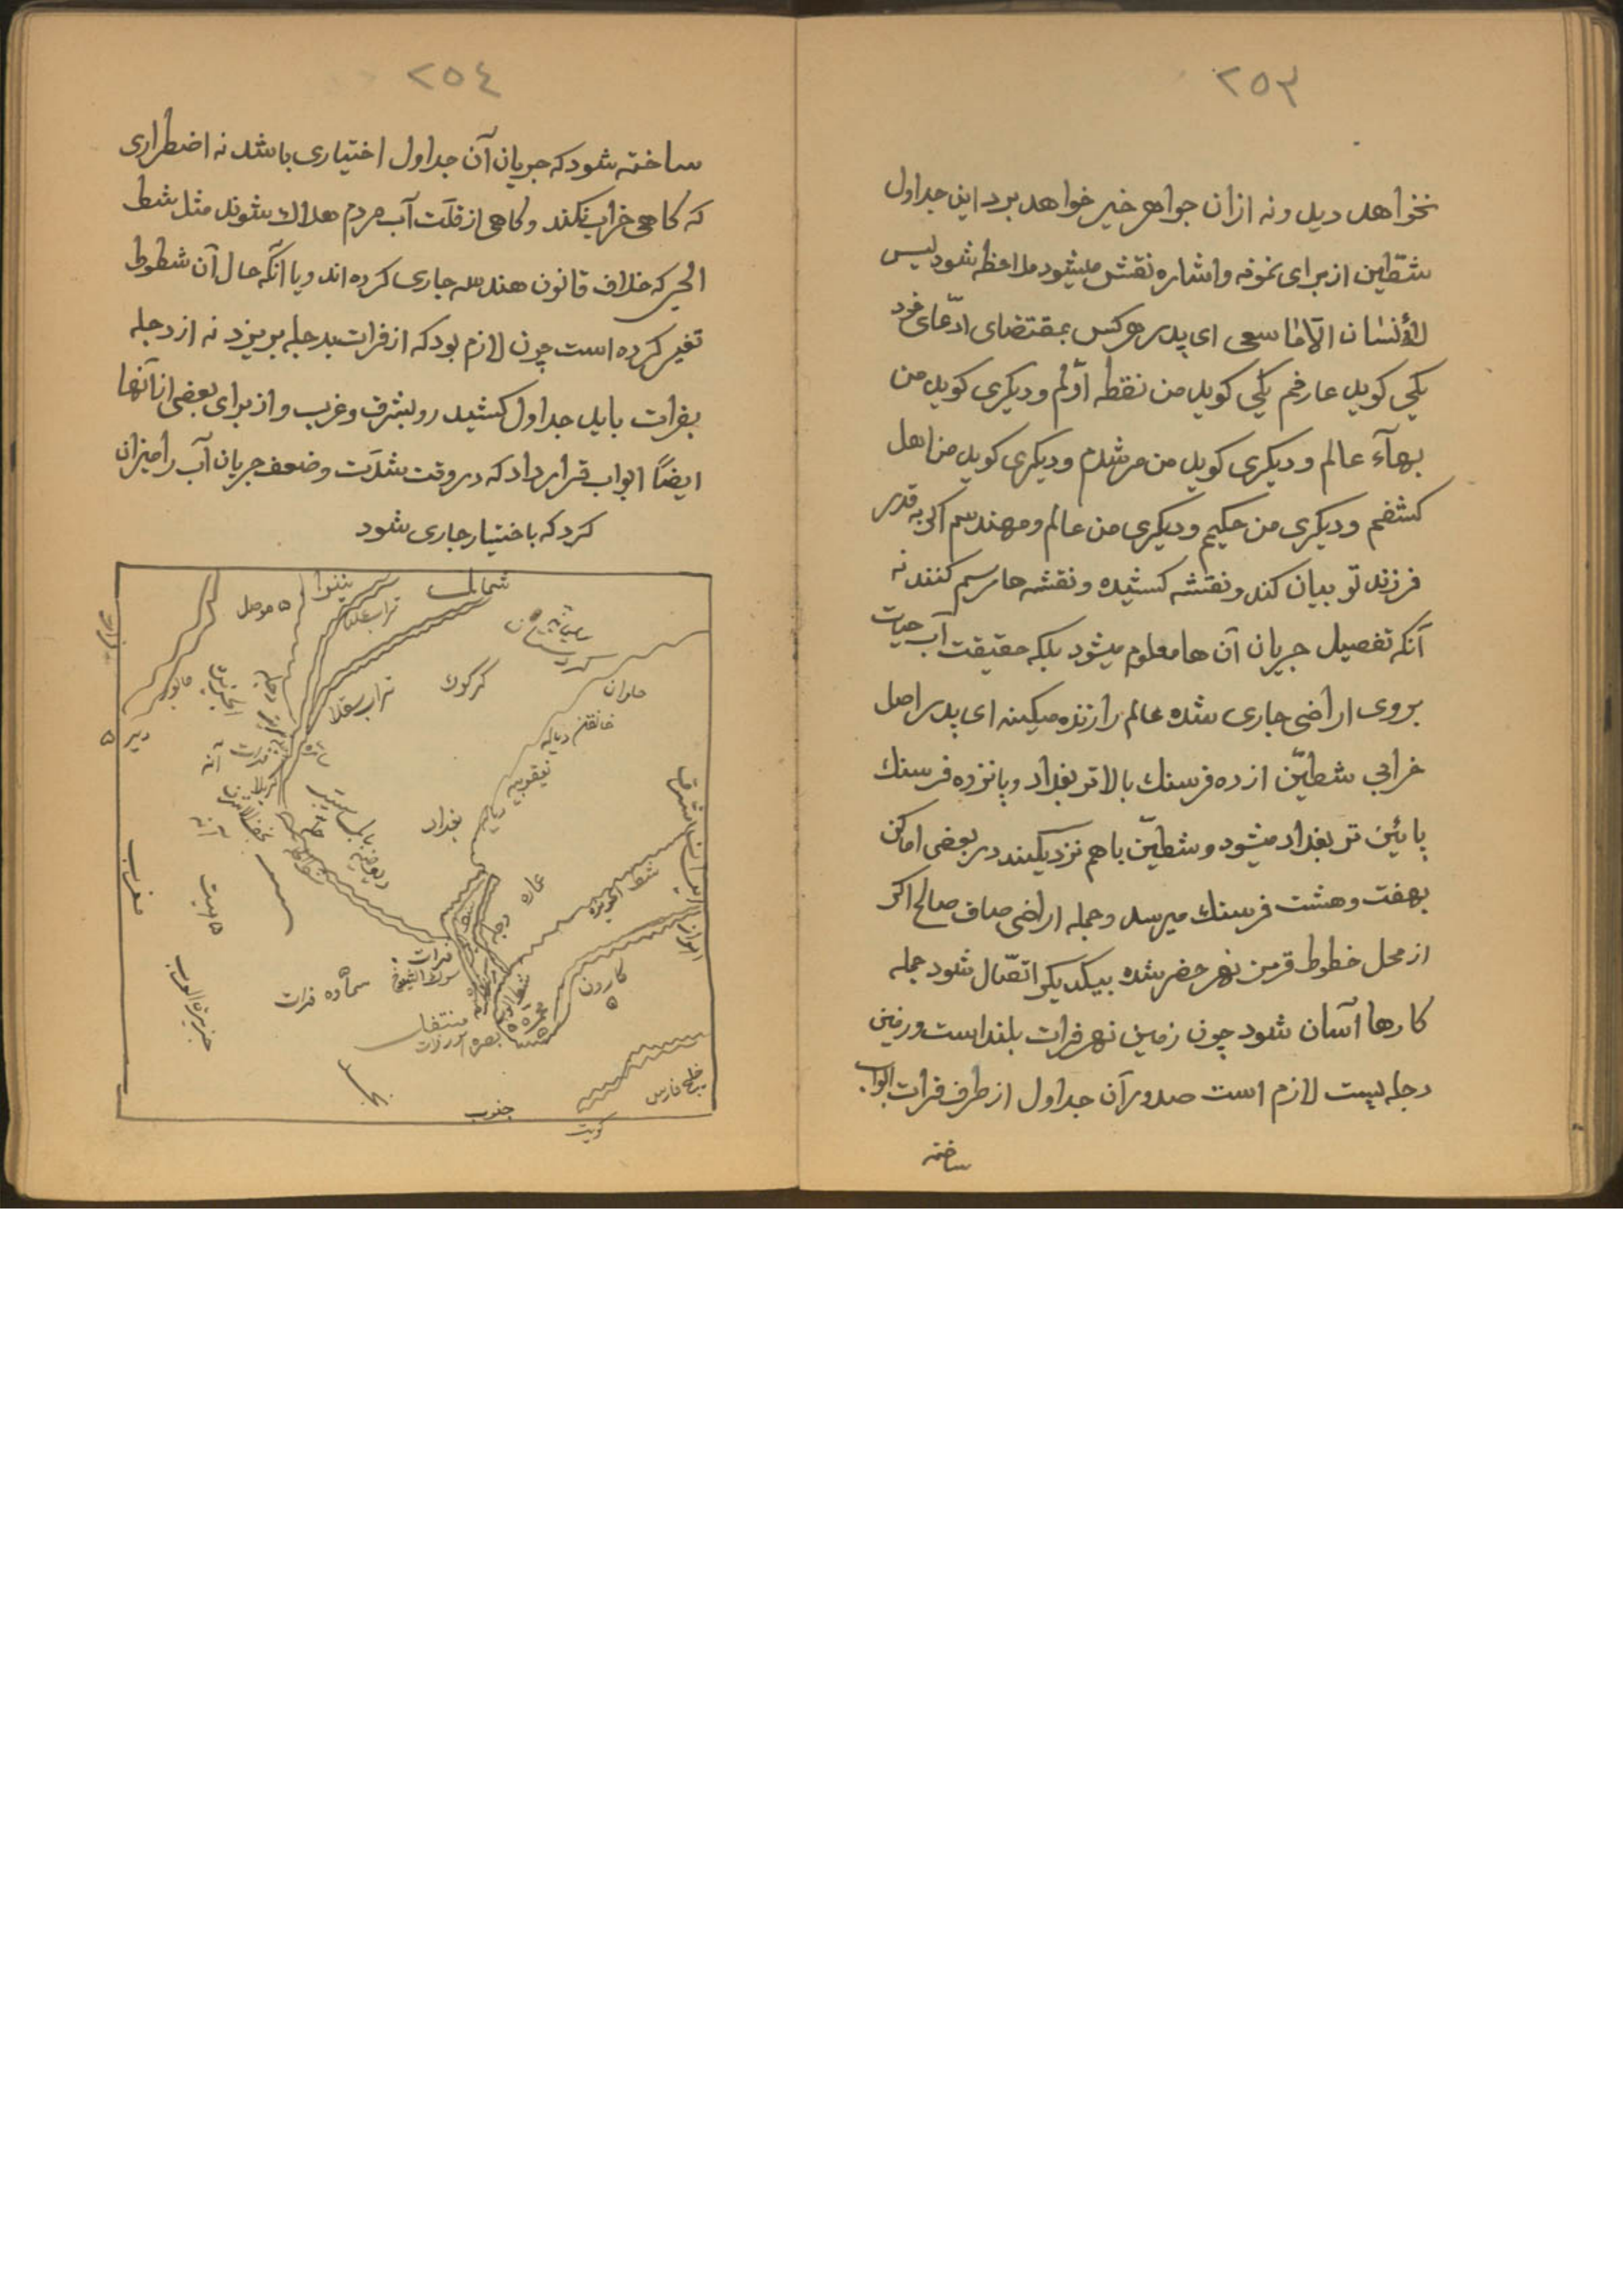 ۲۵۳
نخواهد دید و نه ازان جواهر خیر خواهد برد این جداول
شطّین از برای نمونه و اشاره نقش میشود ملاحظه شود لیس
للأنسان الّا ما سعی ای پدر هرکس بمقتضای ادّعای خود
یکی کوید عارفم یکی کوید من نقطه اوّلم و دیکری کوید من
بهآء عالم و دیکری کوید من مرشدم و دیکری کوید من اهل
کشفم و دیکری من حکیم و دیکری من عالم و مهندسم اکر به قدر
فرزند تو بیان کند و نقشه کشیده و نقشه ها رسم کنند نه
آنکه تفصیل جریان آن ها معلوم میشود بلکه حقیقت آب حیات
بروی اراضی جاری شده عالم را زنده میکند ای پدر اصل
خرابی شطیّن از ده فرسنك بالاتر بغداد و پانزده فرسنك
پائین تر بغداد میشود و شطیّن باهم نزدیکند در بعضی اماکن
بهفت و هشت فرسنك میرسد و جمله اراضی صاف صالح اکر
از محل خطوط قرمز نهر حضر شده بیکدیکر اتصّال شود جمله
کارها آسان شود چون زمین نهر فرات بلند است و زمین
دجله پست لازم است صدور آن جداول از طرف فرات ابواب
ساخته
۲۵٤
ساخته شود که جریان آن جداول اختیاری باشد نه اضطراری
که کاهی خراب نکند و کاهی از قلّت آب مردم هلاك شوند مثل شط
الحی که خلاف قانون هندسه جاری کرده اند و یا آنکه حال آن شطوط
تغیر کرده است چون لازم بود که از فرات بدجله بریزد نه از دجله
بفرات باید جداول کشید رو بشرق و غرب و از برای بعضی از آنها
ایضاً ابواب قرار داد که در وقت شدّت و ضعف جریان آب را میزان
کرد که باختیار جاری شود
شمال
نینوا
موصل
زاب علیا
سلیمانیه
کردستان
کرکوك
زاب سفلا
حلوان
خانقین دیاله
خابور
دیر
دجله
فرات
آنه
کربلا
بابل
بغداد
یعقوبیه
دیاله
مشرق
ایران
عماره
شط الحویزه
دجله
اهواز
مغرب
هیت
فرات
سوق الشیوخ
سماوه فرات
کارون
محمره
منتفك
بصره
جزیرة العرب
نجد
جنوب
خلیج فارس
کویت